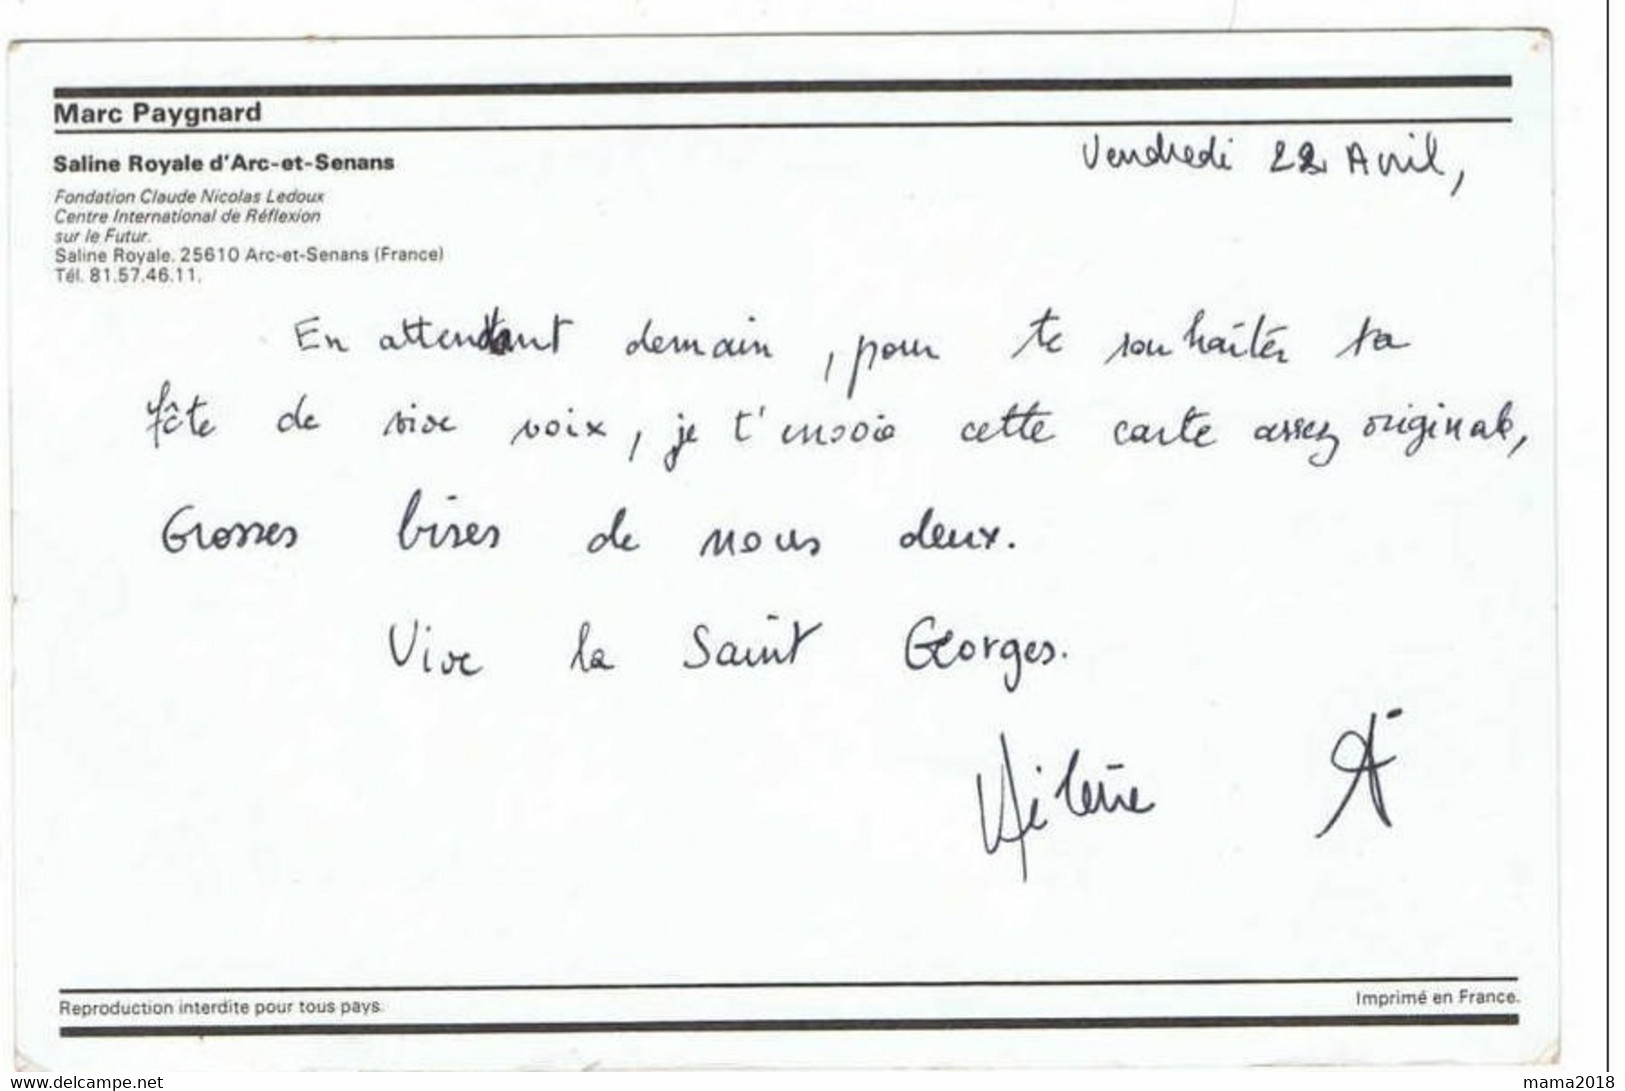 Marc Paygnard
Vendredi 22 Avril,
Saline Royale d'Arc-et-Senans
Fondation Claude Nicolas Ledoux
Centre International de Réflexion
sur le Futur.
Saline Royale. 25610 Arc-et-Senans (France)
Tél. 81.57.46.11.
En attendant demain, pour te souhaiter ta
fête de vive voix, je t'envoie cette carte assez originale,
Grosses bises de nous deux.
Vive la Saint Georges.
Hélène
Reproduction interdite pour tous pays.
Imprimé en France.
www.delcampe.net
mama2018